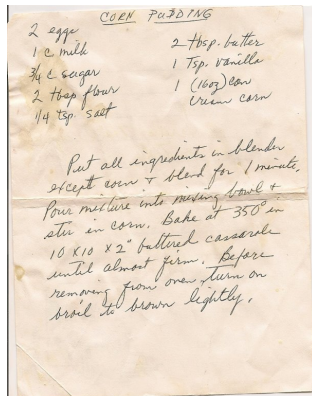 CORN PUDDING
2 eggs
1 C milk
3/4 C sugar
2 tbsp flour
1/4 tsp. salt
2 tbsp. butter
1 Tsp. vanilla
1 (16oz) can
cream corn
Put all ingredients in blender
except corn + blend for 1 minute.
Pour mixture into mixing bowl +
stir in corn. Bake at 350° in
10 x 10 x 2" buttered casserole
until almost firm. Before
removing from oven, turn on
broil to brown lightly.